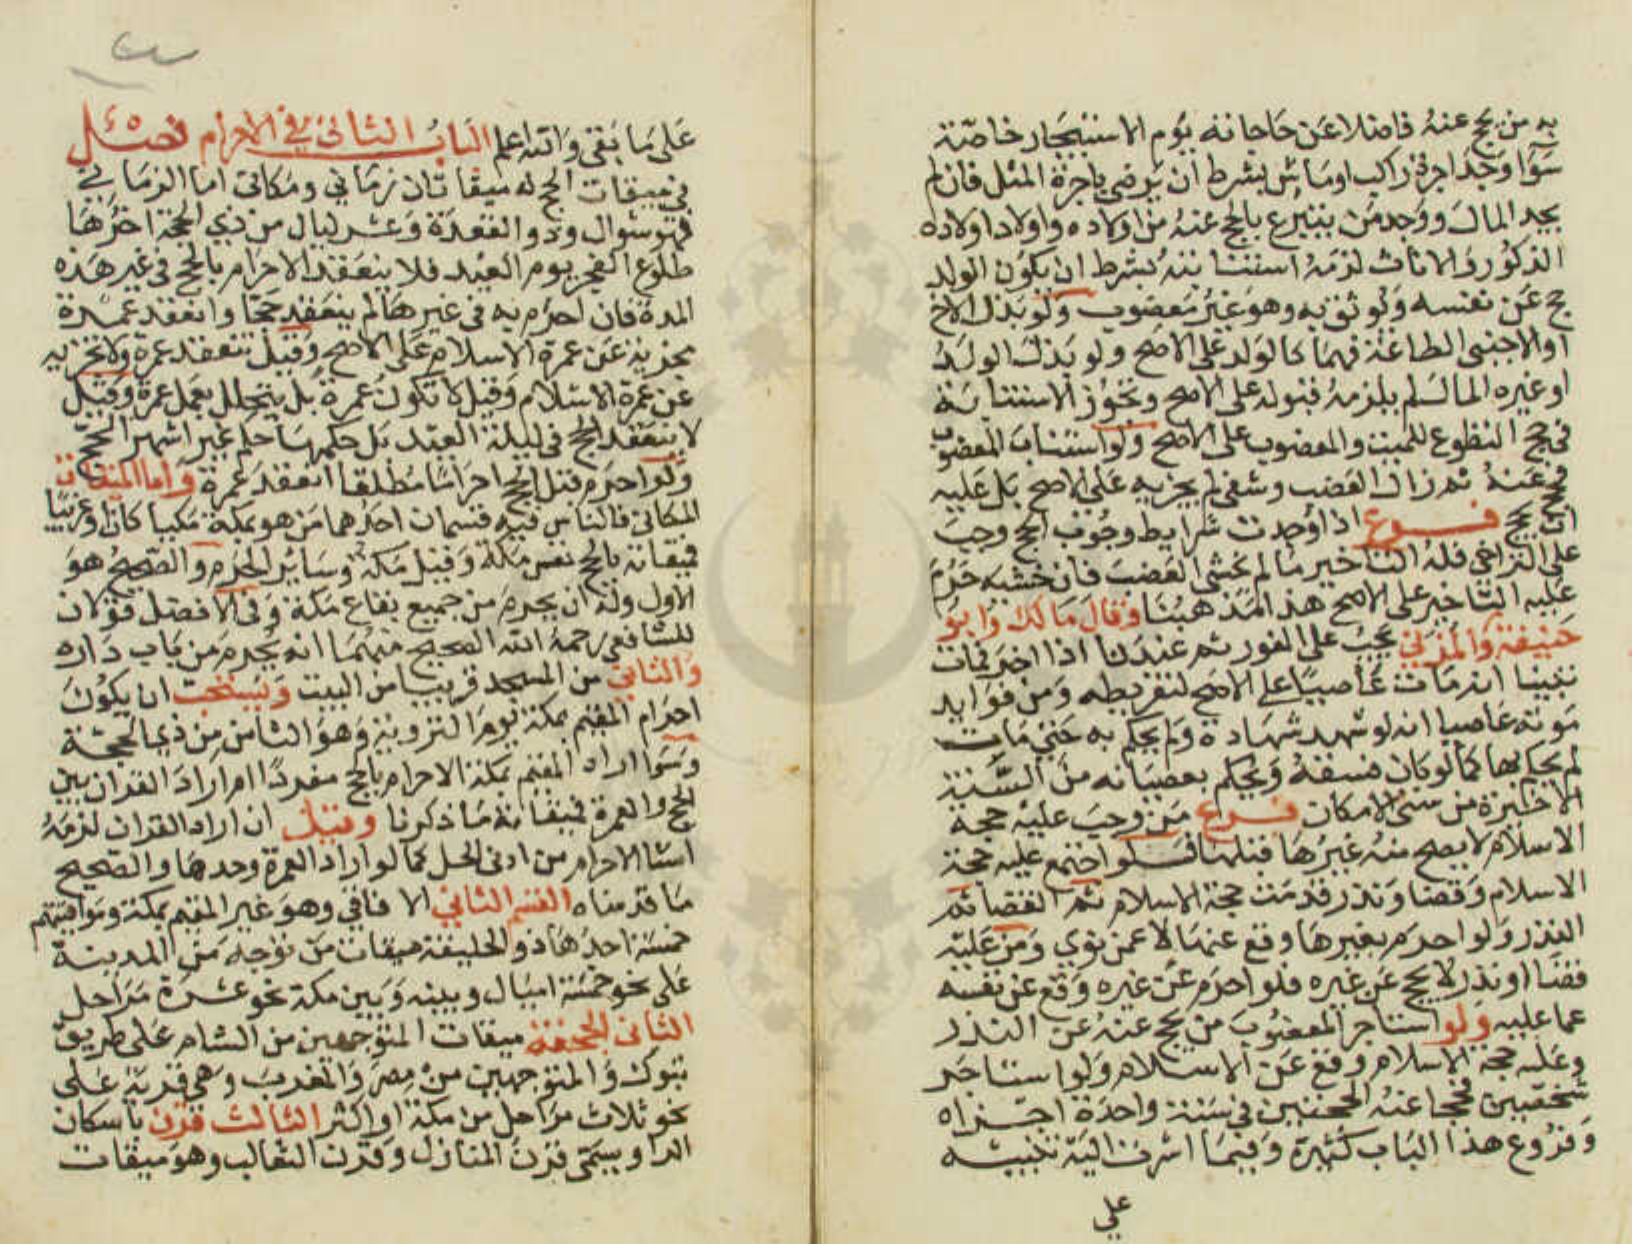 به من يحج عنه فاضلا عن حاجاته يوم الاستيجار خاصة
سوا وجد اجرة راكب او ماش بشرط ان يرضى باجرة المثل فان لم
يجد المال ووجد من يتبرع بالحج عنه من اولاده واولاد اولاده
الذكور والاناث لزمه استنابته بشرط ان يكون الولد
حج عن نفسه ولو ثق به وهو غير معضوب ولو بذل الاخ
او الاجنبي الطاعة فهما كالولد على الاصح ولو بذل الولد
او غيره المال لم يلزمه قبوله على الاصح وتجوز الاستنابة
في حج التطوع للميت والمعضوب على الاصح ولو استناب المعضوب
فحج عنه ثم زال العضب وشفي لم يجزيه على الاصح بل عليه
ان يحج فرع اذا وجدت شرايط وجوب الحج وجب
على التراخي فله التاخير ما لم يخشى العضب فان خشيه حرم
عليه التاخير على الاصح هذا مذهبنا وقال مالك وابو
حنيفة والمزني يجب على الفور ثم عندنا اذا اخر فمات
تبينا انه مات عاصيا على الاصح لتفريطه ومن فوايد
موته عاصيا انه لو شهد شهادة ولم يحكم به حتي مات
لم يحكم بها كما لو بان فسقه ويحكم بعصيانه من السنة
الاخيرة من سني الامكان فرع من وجب عليه حجة
الاسلام لا يصح منه غيرها قبلها فلو اجتمع عليه حجة
الاسلام وقضا ونذر قدمت حجة الاسلام ثم القضا ثم
النذر ولو احرم بغيرها وقع عنها لا عن نوي ومن عليه
قضا او نذر لا يحج عن غيره فلو احرم عن غيره وقع عن نفسه
عما عليه ولو استاجر المعضوب من يحج عنه عن النذر
وعليه حجة الاسلام وقع عن الاسلام ولو استاجر
شخصين فحجا عنه الحجتين في سنة واحدة اجزاه
وفروع هذا الباب كثيرة وفيما اشرنا اليه تنبيه
علي
على ما بقى والله اعلم الباب الثاني في الاحرام فصل
في ميقات الحج له ميقاتان زماني ومكاني اما الزماني
فهو شوال وذو القعدة وعشر ليال من ذي الحجة اخرها
طلوع الفجر يوم العيد فلا ينعقد الاحرام بالحج في غير هذه
المدة فان احرم به في غيرها لم ينعقد حجا وانعقد عمرة
مجزية عن عمرة الاسلام على الاصح وقيل تنعقد عمرة ولا تجزيه
عن عمرة الاسلام وقيل لا تكون عمرة بل يتحلل بعمل عمرة وقيل
لا ينعقد الحج في ليلة العيد بل حكمها حكم غير اشهر الحج
ولو احرم قبل الحج احراما مطلقا انعقد عمرة واما الميقات
المكاني فالناس فيه قسمان احدهما من هو بمكة مكيا كان او غريبا
فميقاته بالحج نفس مكة وقيل مكة وساير الحرم والصحيح هو
الاول وله ان يحرم من جميع بقاع مكة وفي الافضل قولان
للشافعي رحمه الله الصحيح منهما انه يحرم من باب داره
والثاني من المسجد قريبا من البيت ويستحب ان يكون
احرام المقيم بمكة يوم التروية وهو الثامن من ذي الحجة
وسوا اراد المقيم بمكة الاحرام بالحج مفردا ام اراد القران بين
الحج والعمرة فميقاته ما ذكرنا وقيل ان اراد القران لزمه
انشا الاحرام من ادنى الحل كما لو اراد العمرة وحدها والصحيح
ما قدمناه القسم الثاني الافاقي وهو غير المقيم بمكة ومواقيتهم
خمسة احدها ذو الحليفة ميقات من توجه من المدينة
على نحو خمسة اميال وبينه وبين مكة نحو عشرة مراحل
الثاني الجحفة ميقات المتوجهين من الشام على طريق
تبوك والمتوجهين من مصر والمغرب وهي قرية على
نحو ثلاث مراحل من مكة او اكثر الثالث قرن باسكان
الرا ويسمى قرن المنازل وقرن الثعالب وهو ميقات